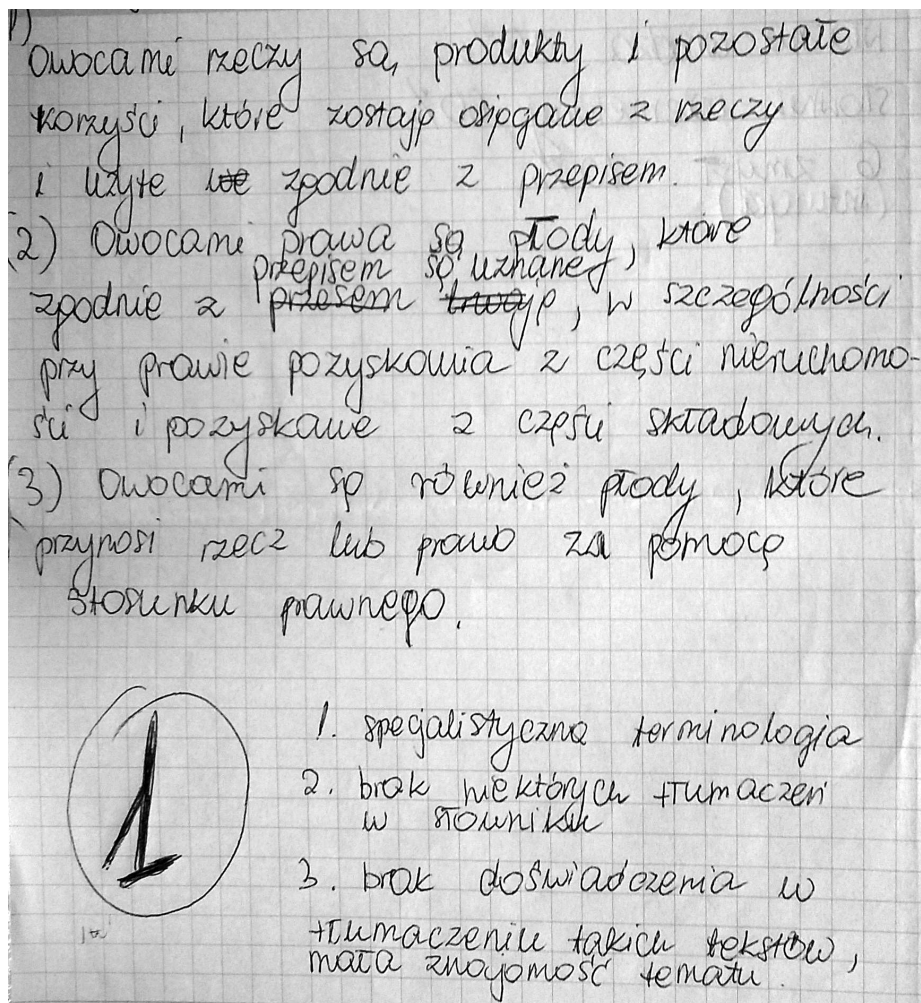 1)
Owocami rzeczy są, produkty i pozostałe
korzyści, które zostają osiągane z rzeczy
i użyte zgodnie z przepisem.
(2) Owocami prawa są płody, które
przepisem są uznane,
zgodnie z przesem trwają, w szczególności
przy prawie pozyskowia z części nieruchomo-
ści i pozyskane z części składowych.
(3) Owocami są również płody, które
przynosi rzecz lub prawo za pomocą
stosunku prawnego.
1. specjalistyczna terminologia
2. brak niektórych tłumaczeń
w słowniku
1
3. brak doświadczenia w
tłumaczeniu takich tekstów,
mała znajomość tematu.